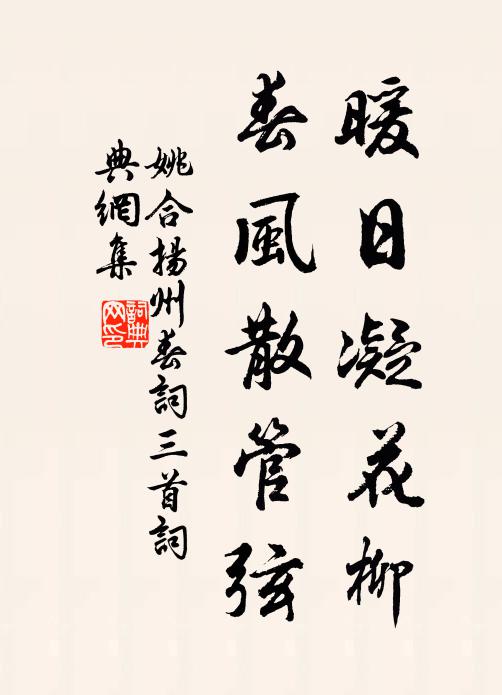 暖日凝花柳
春風散管弦
姚合揚州春詞三首詞
典網集
詞典
网印